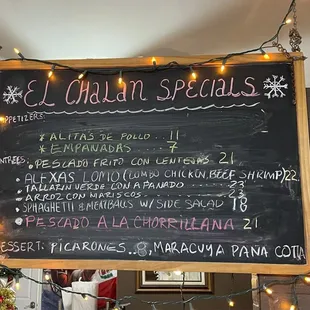 EL CHALAN SPECIALS
APPETIZERS:
* ALITAS DE POLLO .. 11
* EMPANADAS .... 7
ENTREES:
• PESCADO FRITO CON LENTEJAS 21
• ALEXAS LOMO (COMBO CHICKEN, BEEF SHRIMP) 22
• TALLARIN VERDE CON APANADO .... 23
• ARROZ CON MARISCOS
• SPHAGHETTI & MEATBALLS W/ SIDE SALAD 18
• PESCADO A LA CHORRILLANA 21
DESSERT: PICARONES .. 8, MARACUYA PAÑA COTTA